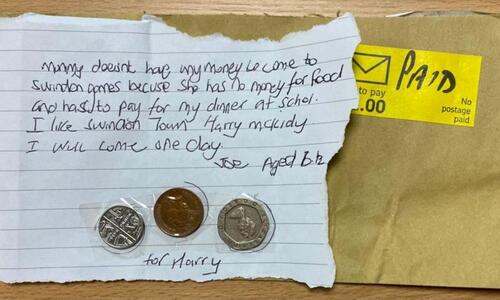 mummy doesnt have any money to come to
swindon games becuse she has no money for food
and hast to pay for my dinner at schol.
I like swindon Town Harry mckirdy
I will come one day.
Joe Aged 6½
for Harry
PAID
to pay
.00
No
postage
paid